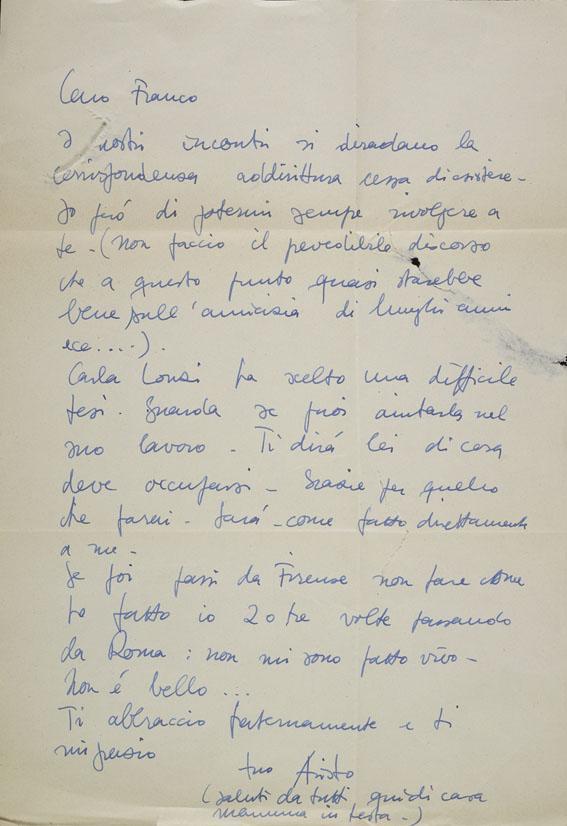 Caro Franco
I nostri incontri si diradano la
corrispondenza addirittura cessa di esistere -
Io però di potermi sempre rivolgere a
te - (Non faccio il prevedibile discorso
che a questo punto quasi starebbe
bene sull'amicizia di lunghi anni
ecc....).
Carla Lonzi ha scelto una difficile
tesi. Guarda se puoi aiutarla nel
suo lavoro - Ti dirà lei di cosa
deve occuparsi - Grazie per quello
che farai - Sarà - come fatto direttamente
a me -
Se poi passi da Firenze non fare come
ho fatto io 2 o tre volte passando
da Roma: non mi sono fatto vivo -
Non é bello ...
Ti abbraccio fraternamente e ti
ringrazio
tuo
(saluti da tutti quidi casa
mamma in testa -)